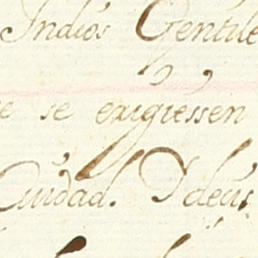 Indios Gentile
e se exigiessen
Ciudad. Y deus